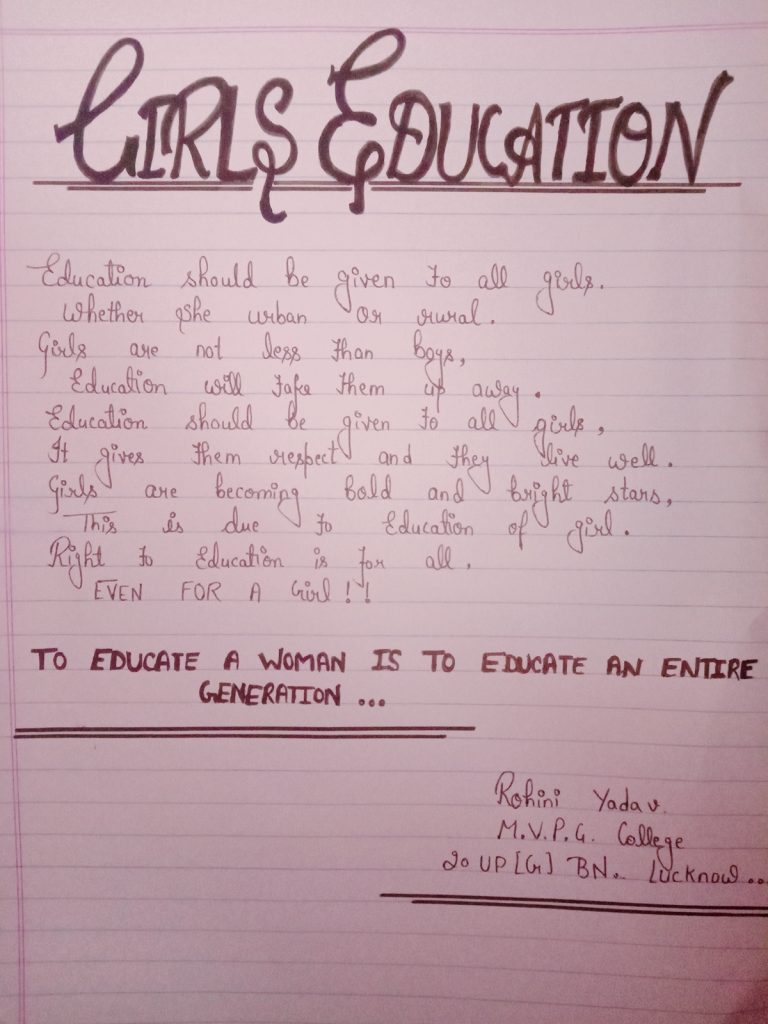 GIRLS EDUCATION
Education should be given to all girls.
Whether she urban or rural.
Girls are not less than boys,
Education will take them up away.
Education should be given to all girls,
It gives them respect and they live well.
Girls are becoming bold and bright stars,
This is due to Education of girl.
Right to Education is for all.
EVEN FOR A Girl!!
TO EDUCATE A WOMAN IS TO EDUCATE AN ENTIRE
GENERATION ...
Rohini Yadav.
M.V.P.G. College
20 UP [G] BN.. Lucknow...